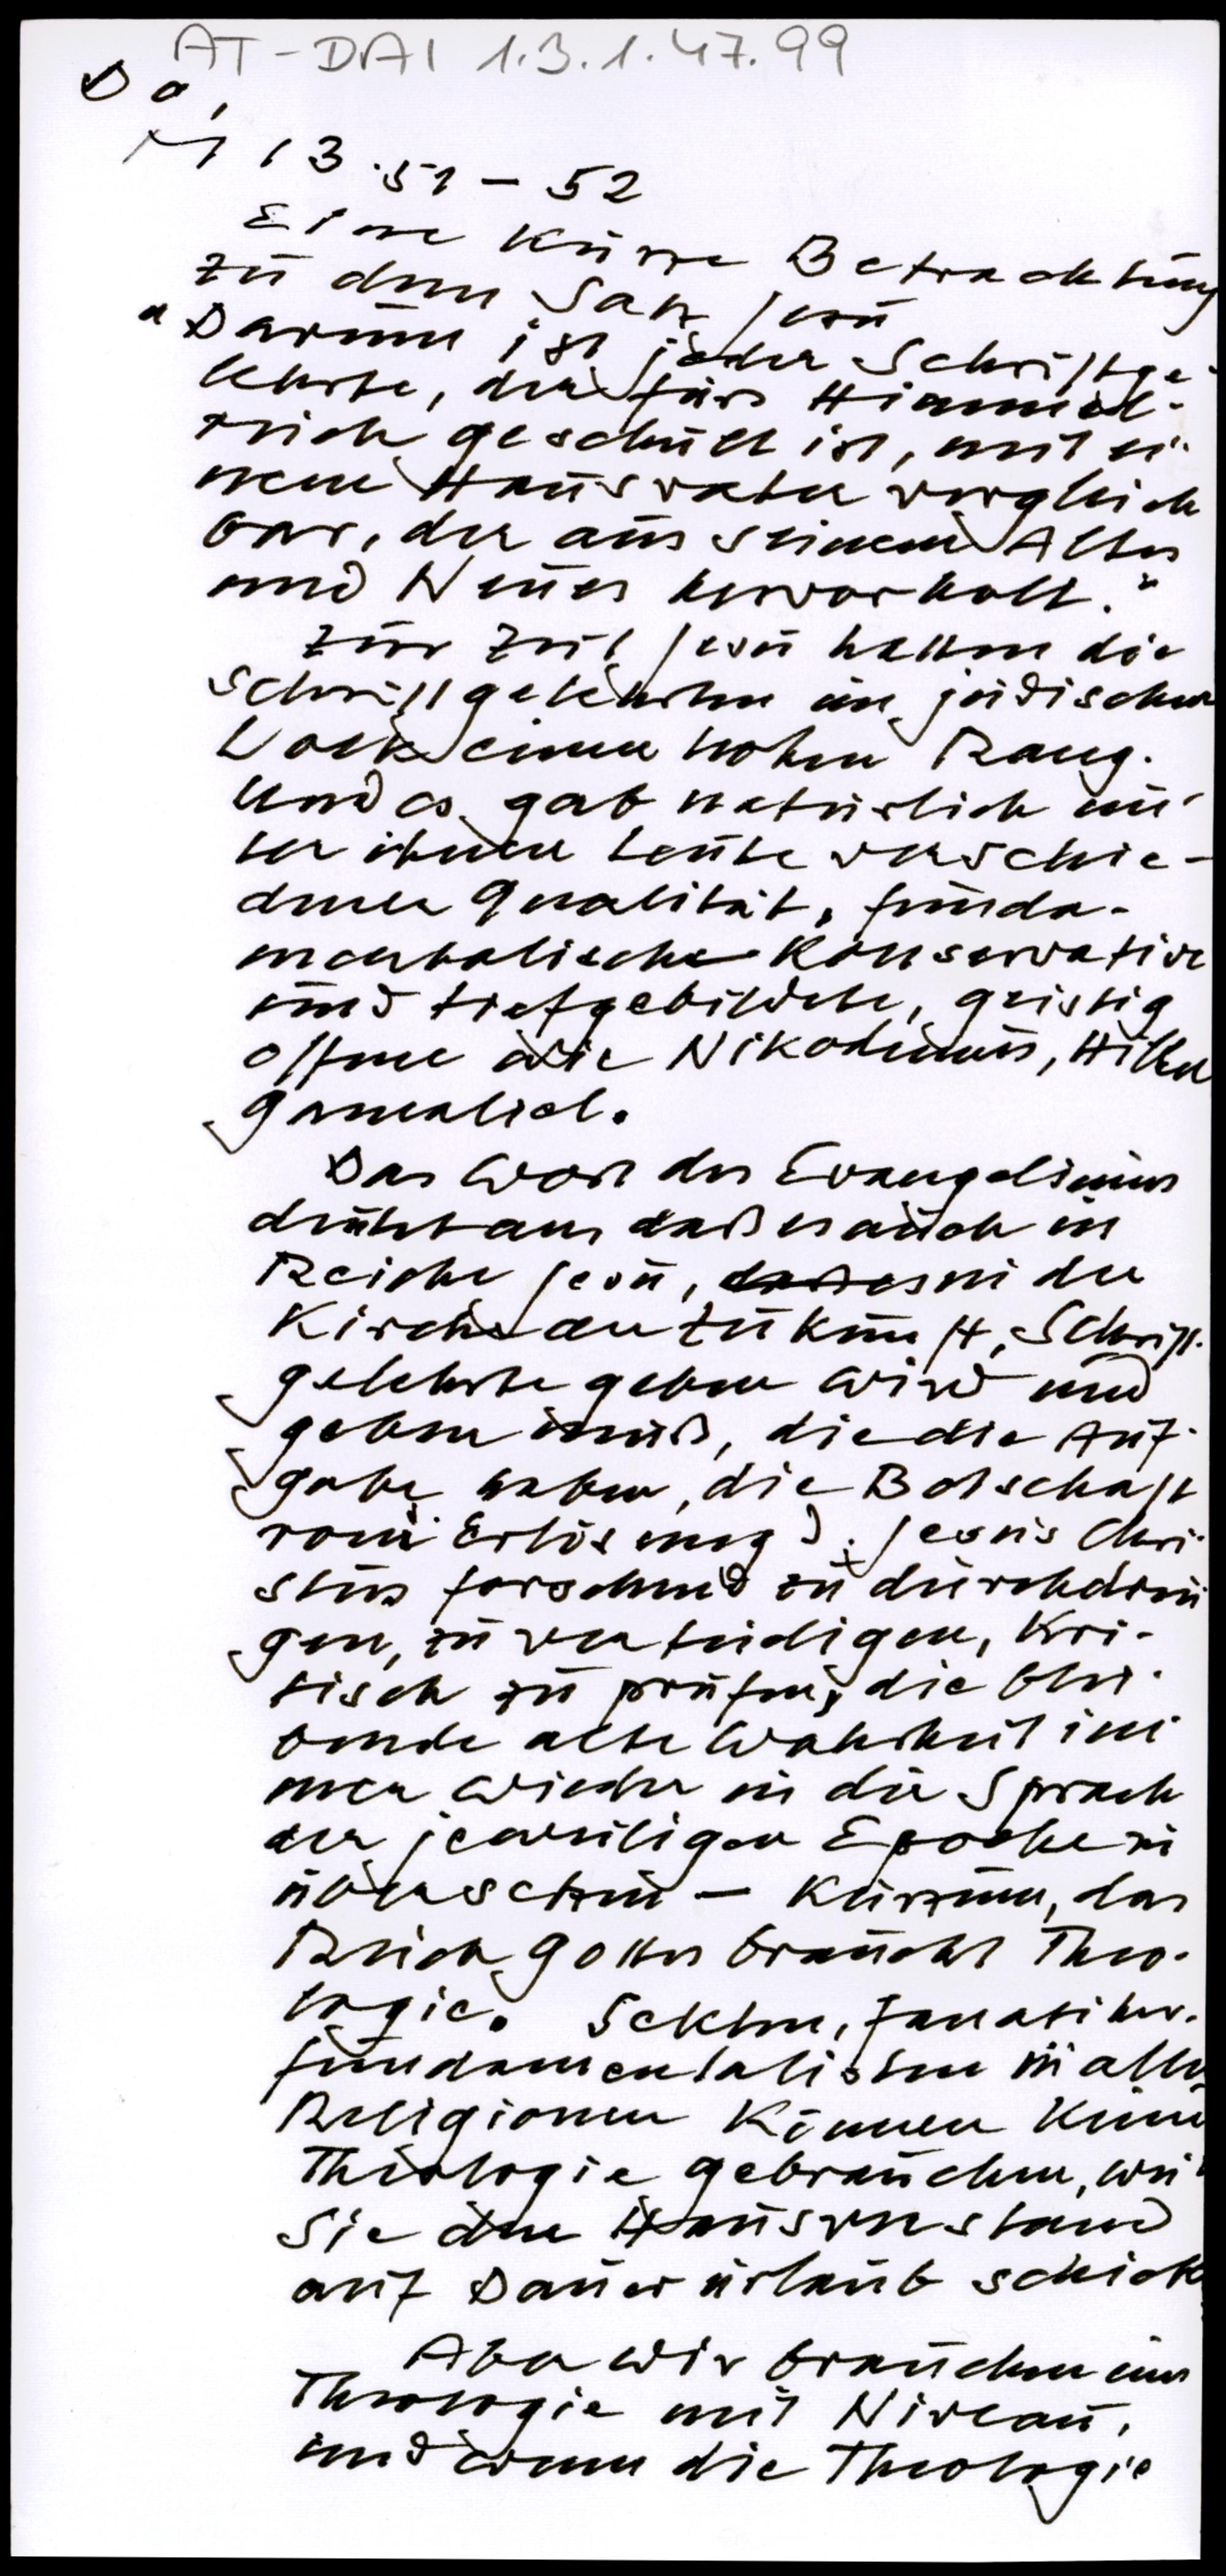 AT-DAI 1.3.1.47.99
Do,
M 13.51-52
Eine kurze Betrachtung
zu dem Satz Jesu
"Darum ist jeder Schriftge-
lehrte, der fürs Himmel-
reich geschult ist, mit ei-
nem Hausvater vergleich
bar, der aus seinem Altes
und Neues hervorholt."
Zur Zeit Jesu hatten die
Schriftgelehrten im jüdischen
Volk einen hohen Rang.
Und es gab natürlich un-
ter ihnen Leute verschie-
dener Qualität, funda-
mentalische Konservative
und tiefgebildete, geistig
offene wie Nikodemus, Hillel
Gamaliel.
Das Wort des Evangeliums
drückt aus daß es auch im
Reiche Jesu, in der
Kirche der Zukunft, Schrift-
gelehrte geben wird und
geben muß, die die Auf-
gabe haben, die Botschaft
von Erlösung d. Jesus Chri-
stus forschend zu durchdrin
gen, zu verteidigen, kri-
tisch zu prüfen, die blei-
bende alte Wahrheit im
mer wieder in die Sprach
der jeweiligen Epoche zu
übersetzen - Kurzum, das
Reich Gottes braucht Theo-
logie. Sekten, Fanatiker.
Fundamentalisten in allen
Religionen können keine
Theologie gebrauchen, weil
sie den Hausverstand
auf Dauerurlaub schick
Aber wir brauchen eine
Theologie mit Niveau,
und wenn die Theologie